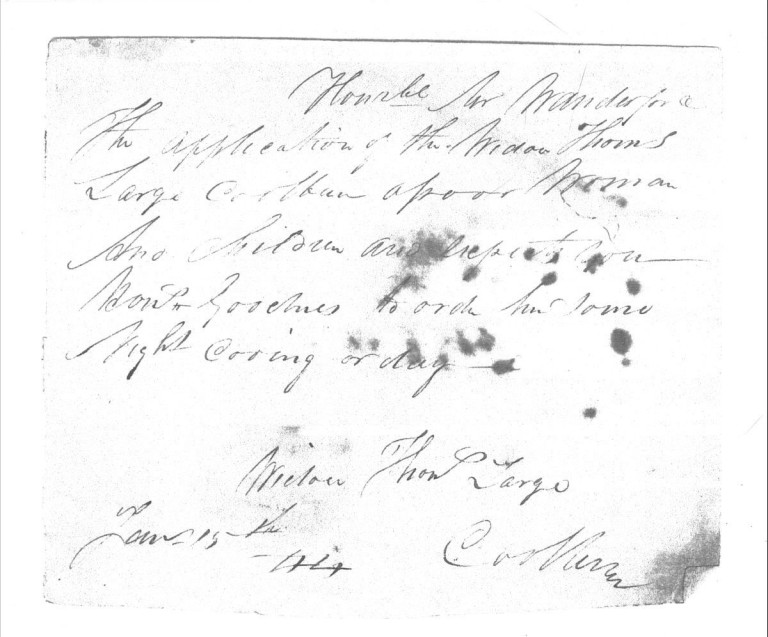 Honrble Sir Wandesforde
The application of the Widow Thoms
Large Coolbaun a poor Woman
And Children and expects you
Honr Goodnes to order her some
Night Coving or day
Widow Thos Large
Jany 15th
44